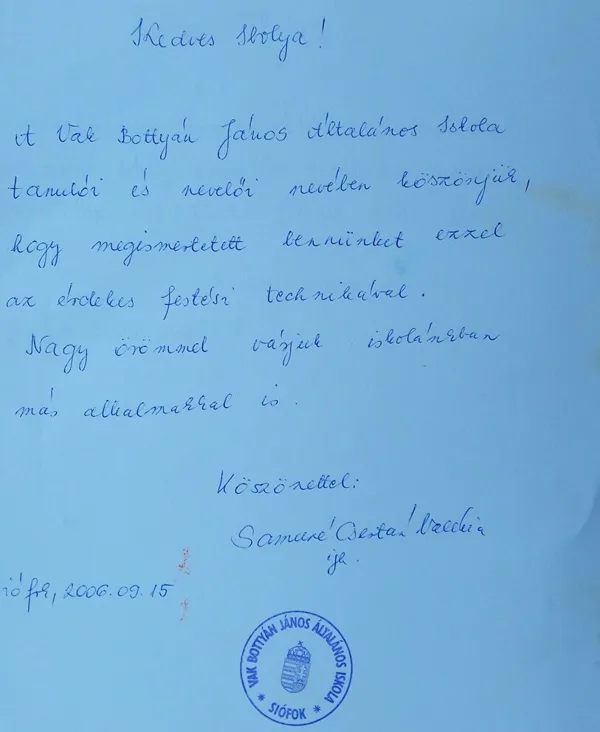 Kedves Ibolya!
A Vak Bottyán János Általános Iskola
tanulói és nevelői nevében köszönjük,
hogy megismertetett bennünket ezzel
az érdekes festési technikával.
Nagy örömmel várjuk iskolánkban
más alkalmakkal is.
Köszönettel:
Samuné Csertán
ig.
iófok, 2006.09.15
VAK BOTTYÁN JÁNOS ÁLTALÁNOS ISKOLA
* SIÓFOK *